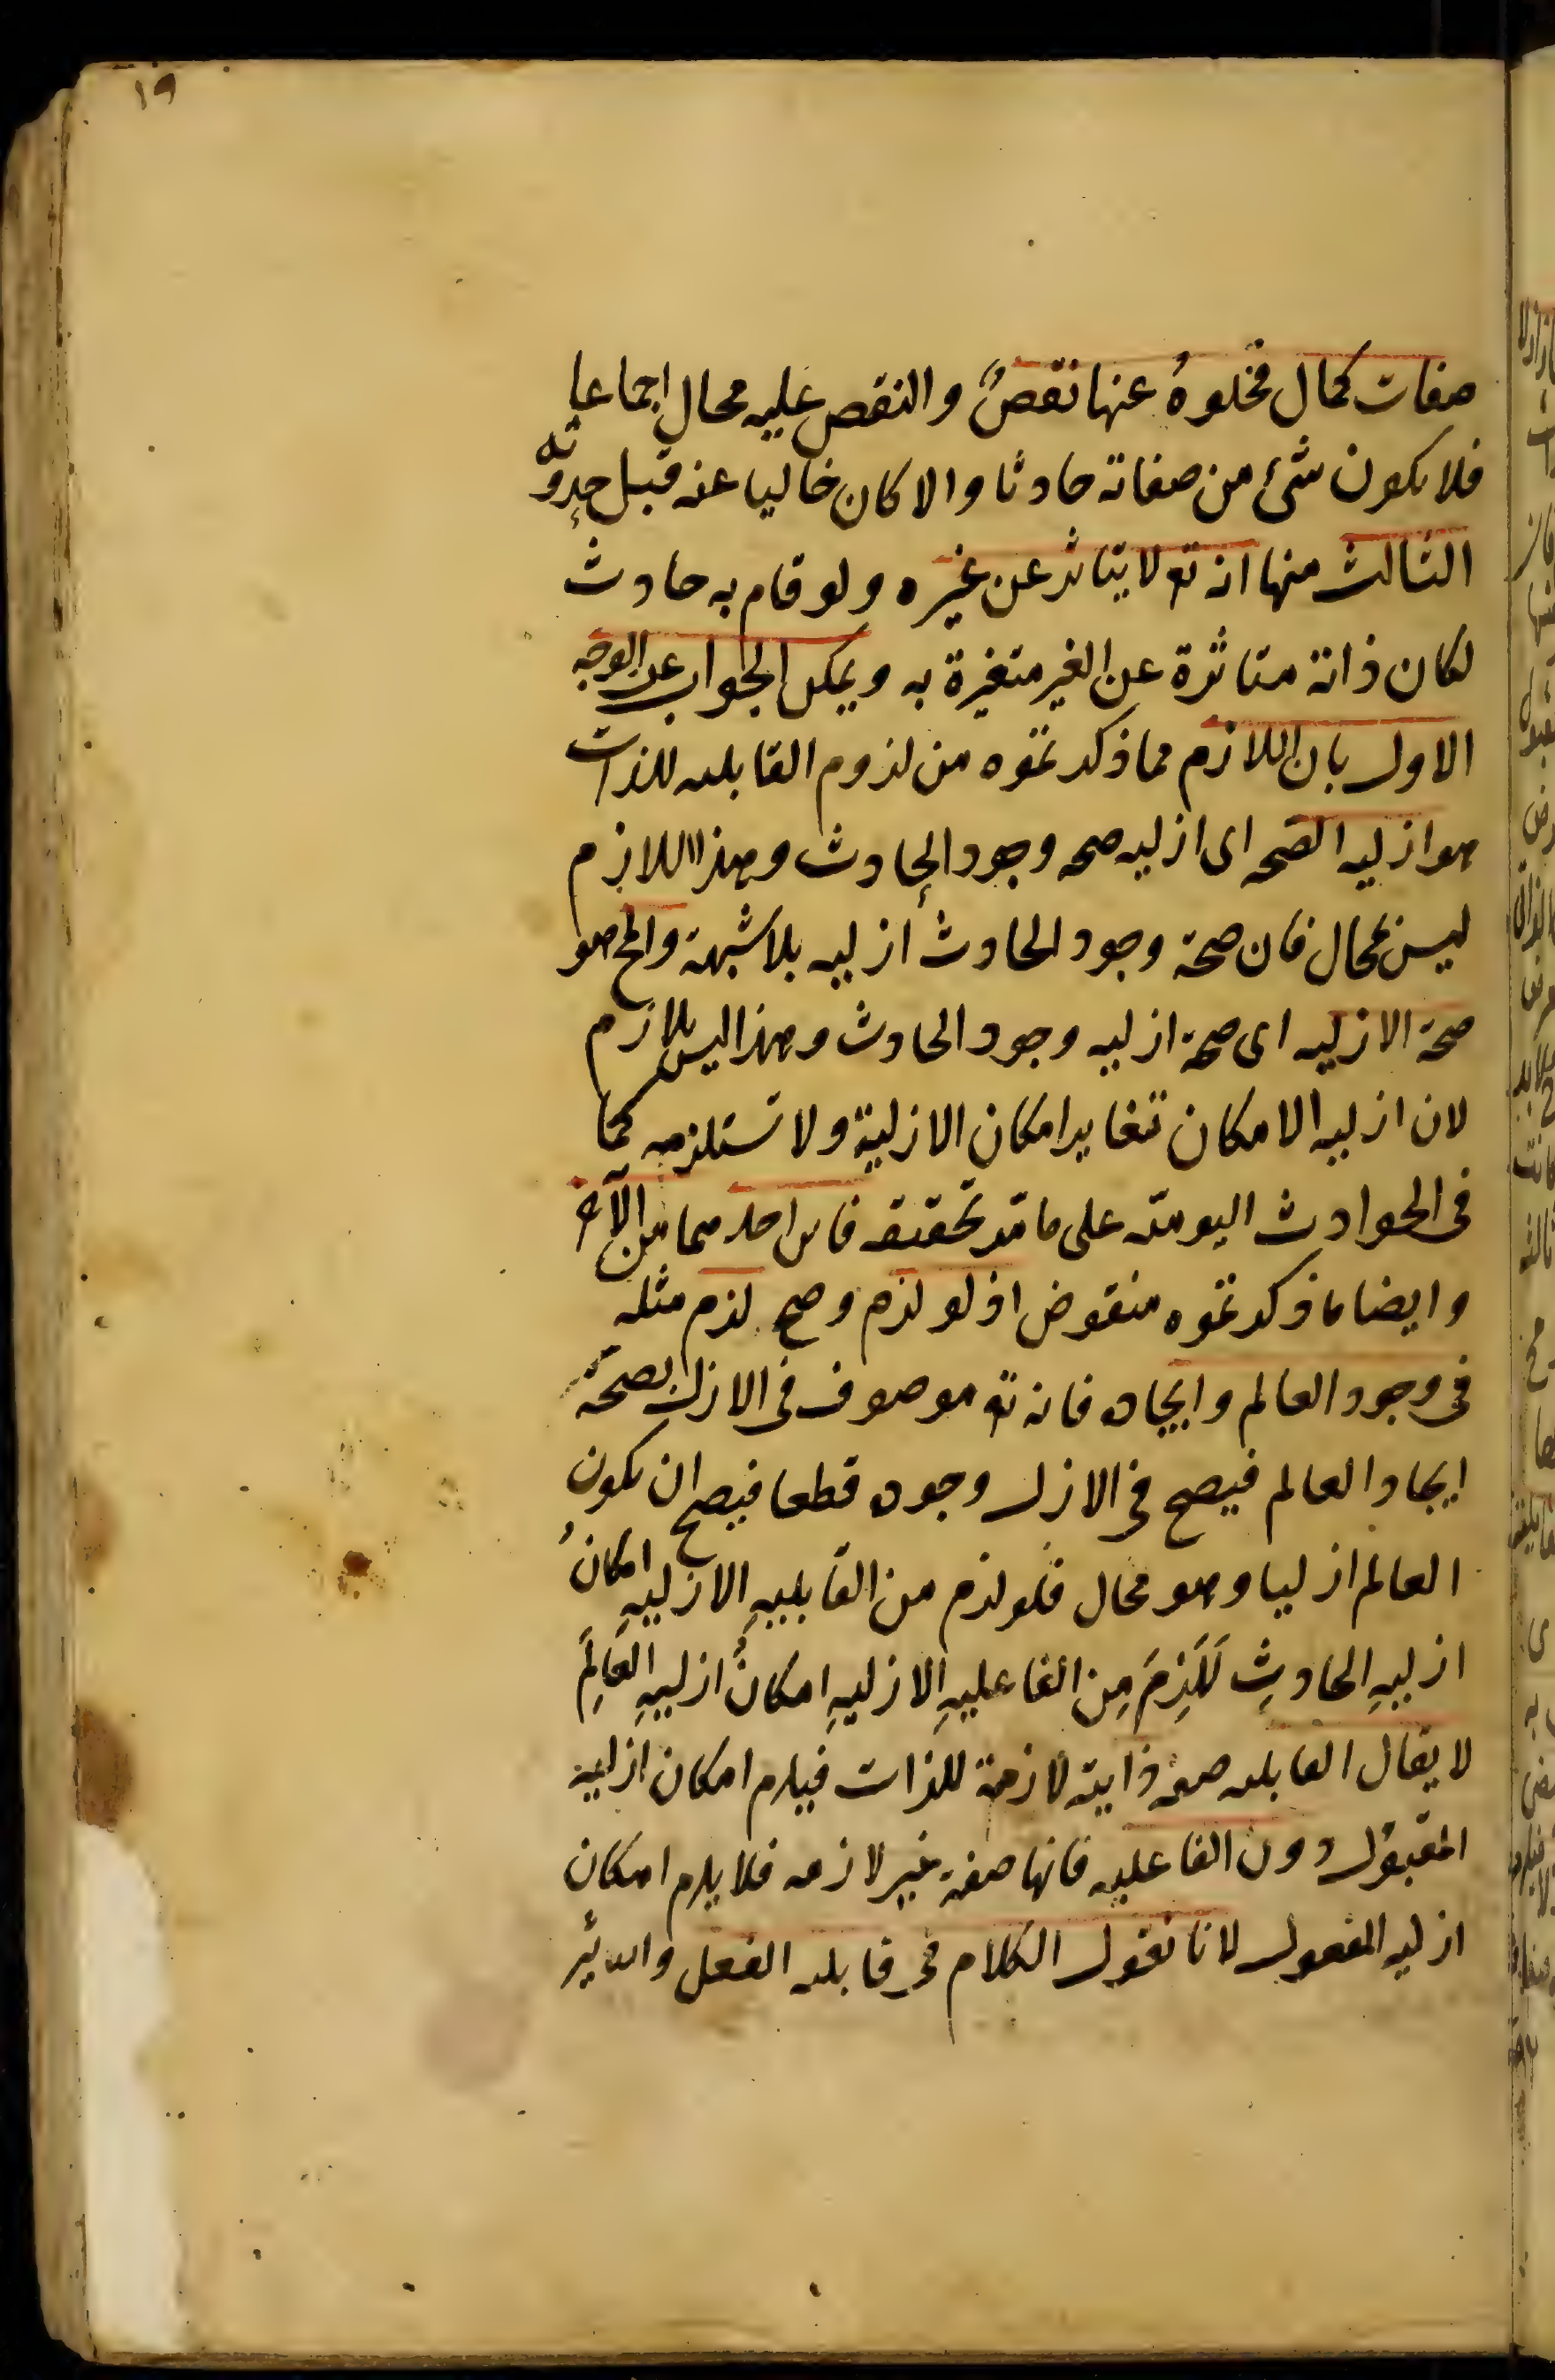 ١٩
صفات كمال فخلوهُ عنها نقصٌ والنقص عليه محال اجماعا
فلا يكون شئ من صفاته حادثا والا كان خاليا عنه قبل حدوثه
الثالث منها انه تع لا يتاثر عن غيره ولو قام به حادث
لكان ذاته متاثرة عن الغير متغيرة به ويمكن الجواب عن الوجه
الاول بان اللازم مما ذكرتموه من لزوم القابليه للذات
هو ازليه الصحه اى ازليه صحه وجود الحادث وهذا اللازم
ليس بمحال فان صحة وجود الحادث ازليه بلا شبهة والمح هو
صحة الازليه اى صحة ازليه وجود الحادث وهذا ليس بلازم
لان ازليه الامكان تغاير امكان الازلية ولا تستلزمه كما
فى الحوادث اليوميّه على ما مرّ تحقيقه فاين احدهما من الآخر
وايضا ما ذكرتموه منقوض اذ لو لزم وصح لزم مثله
فى وجود العالم وايجاده فانه تع موصوف فى الازل بصحة
ايجاد العالم فيصح فى الازل وجوده قطعا فيصح ان يكون
العالم ازليا وهو محال فلو لزم من القابليهِ الازليهِ امكانُ
ازليهِ الحادثِ لَلَزِمَ مِن الفاعليهِ الازليهِ امكانُ ازليهِ العالَمِ
لا يقال القابليه صفه ذاتيه لازمة للذات فيلزم امكان ازلية
المقبول دون الفاعليه فانها صفة غير لازمه فلا يلزم امكان
ازليه المفعول لانا نقول الكلام فى قابليه الفعل والتاثير